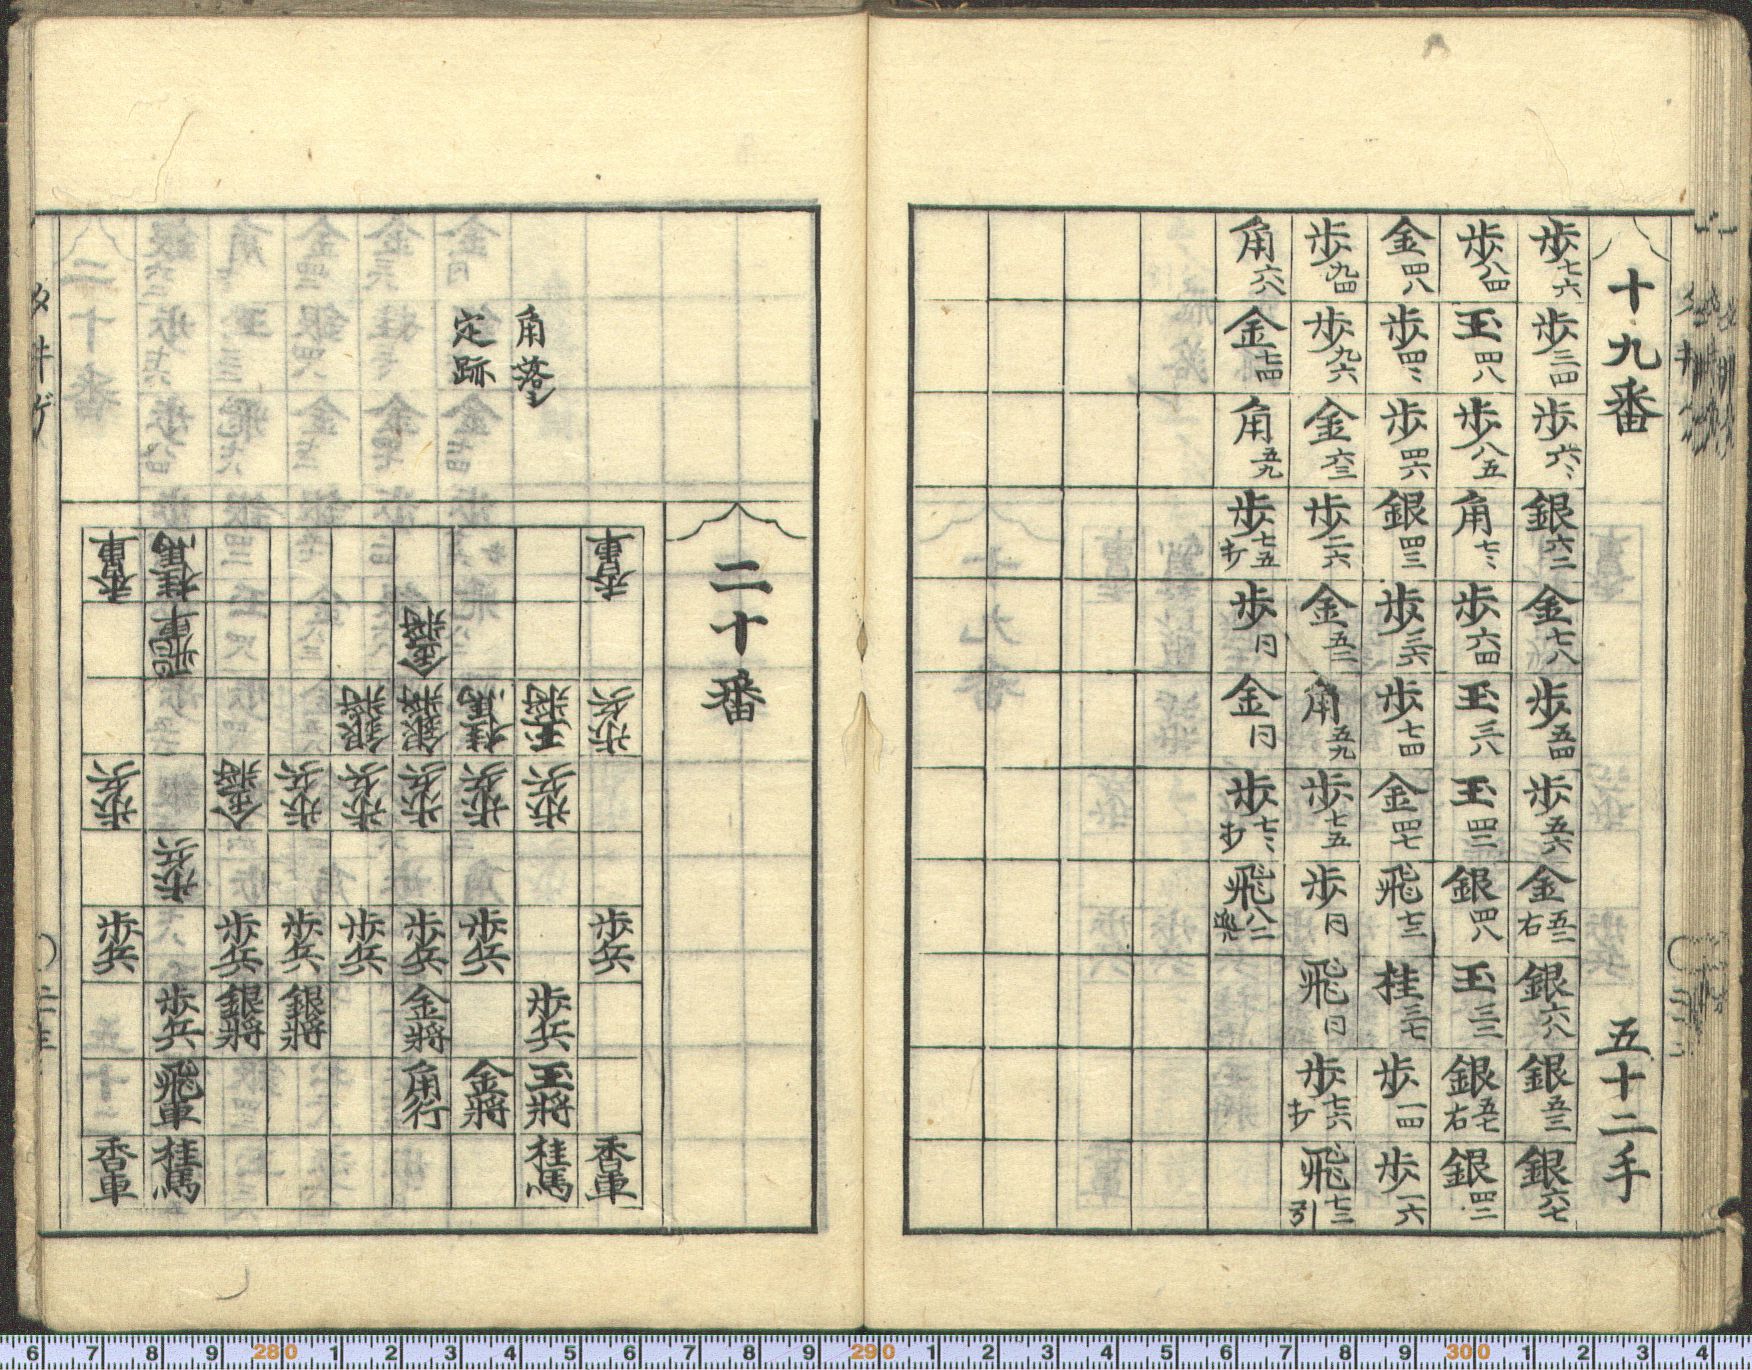 十九番 五十二手
歩七六 歩三四 歩六、 銀六二 金七八 歩五四 歩五六 金五二右 銀六八 銀五三 銀六七
歩八四 玉四八 歩八五 角七、 歩六四 玉三八 玉四二 銀四八 玉三二 銀五七右 銀四二
金四八 歩四、 歩四六 銀四三 歩三六 歩七四 金四七 飛七二 桂三七 歩一四 歩一六
歩九四 歩九六 金六三 歩二六 金五二 角五九 歩七五 歩同 飛同 歩七六打 飛七二引
角六八 金七四 角五九 歩七五打 歩同 金同 歩七、打 飛八二
二十番
角落シ
定跡
香車 歩兵 歩兵 香車
玉將 歩兵 歩兵 玉將 桂馬
桂馬 歩兵 歩兵 金將
金將 銀將 歩兵 歩兵 金將 角行
銀將 歩兵 歩兵
歩兵 歩兵 銀將
金將 歩兵 銀將
桂馬 飛車 歩兵 歩兵 飛車 桂馬
香車 歩兵 歩兵 香車